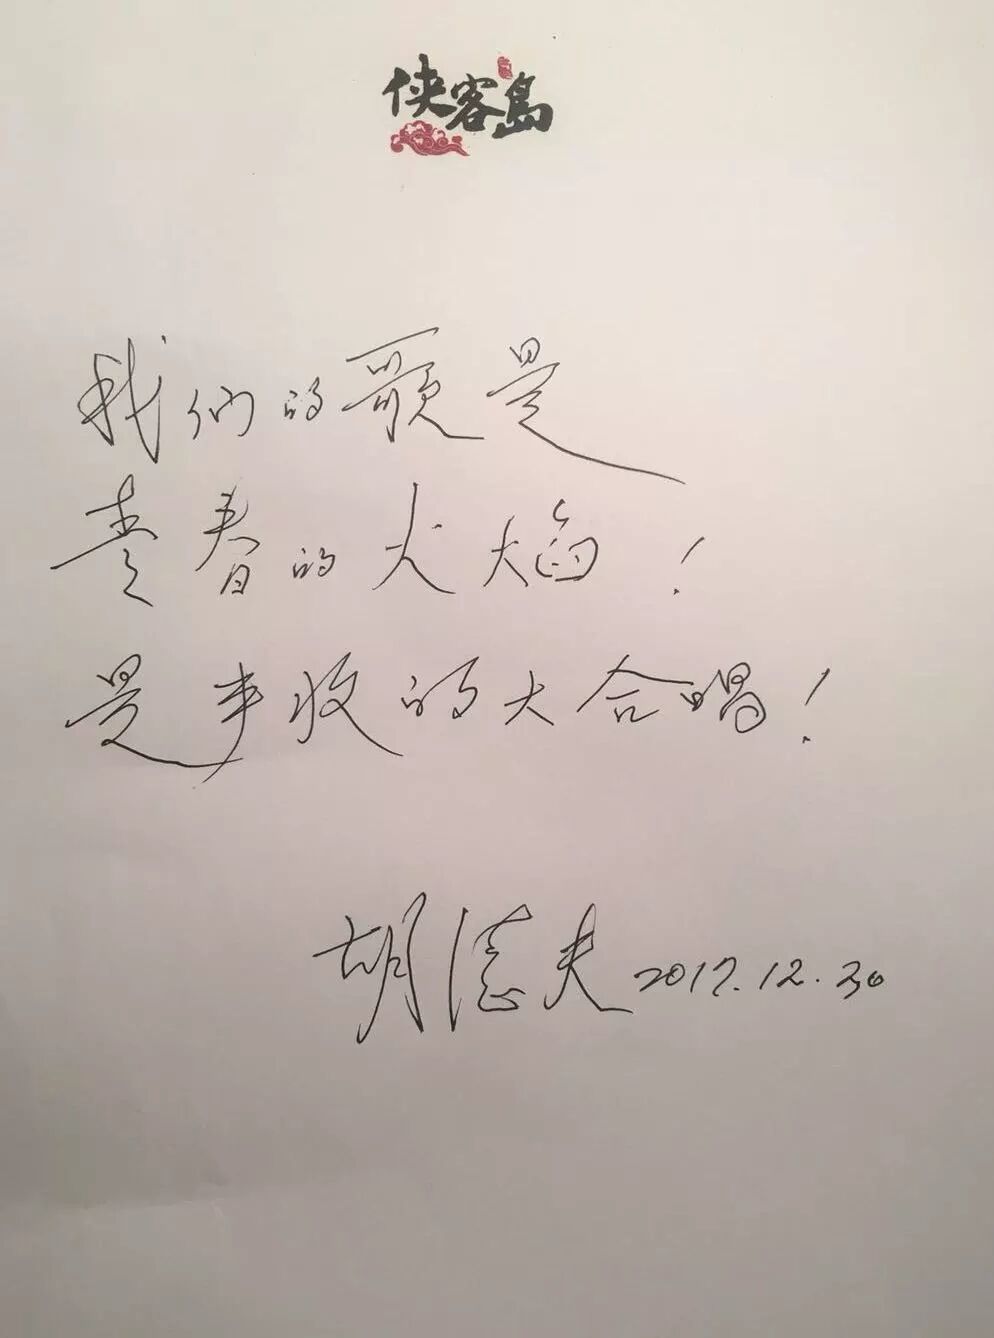 侠客岛
我们的歌是
青春的火焰！
是丰收的大合唱！
胡德夫 2017.12.30